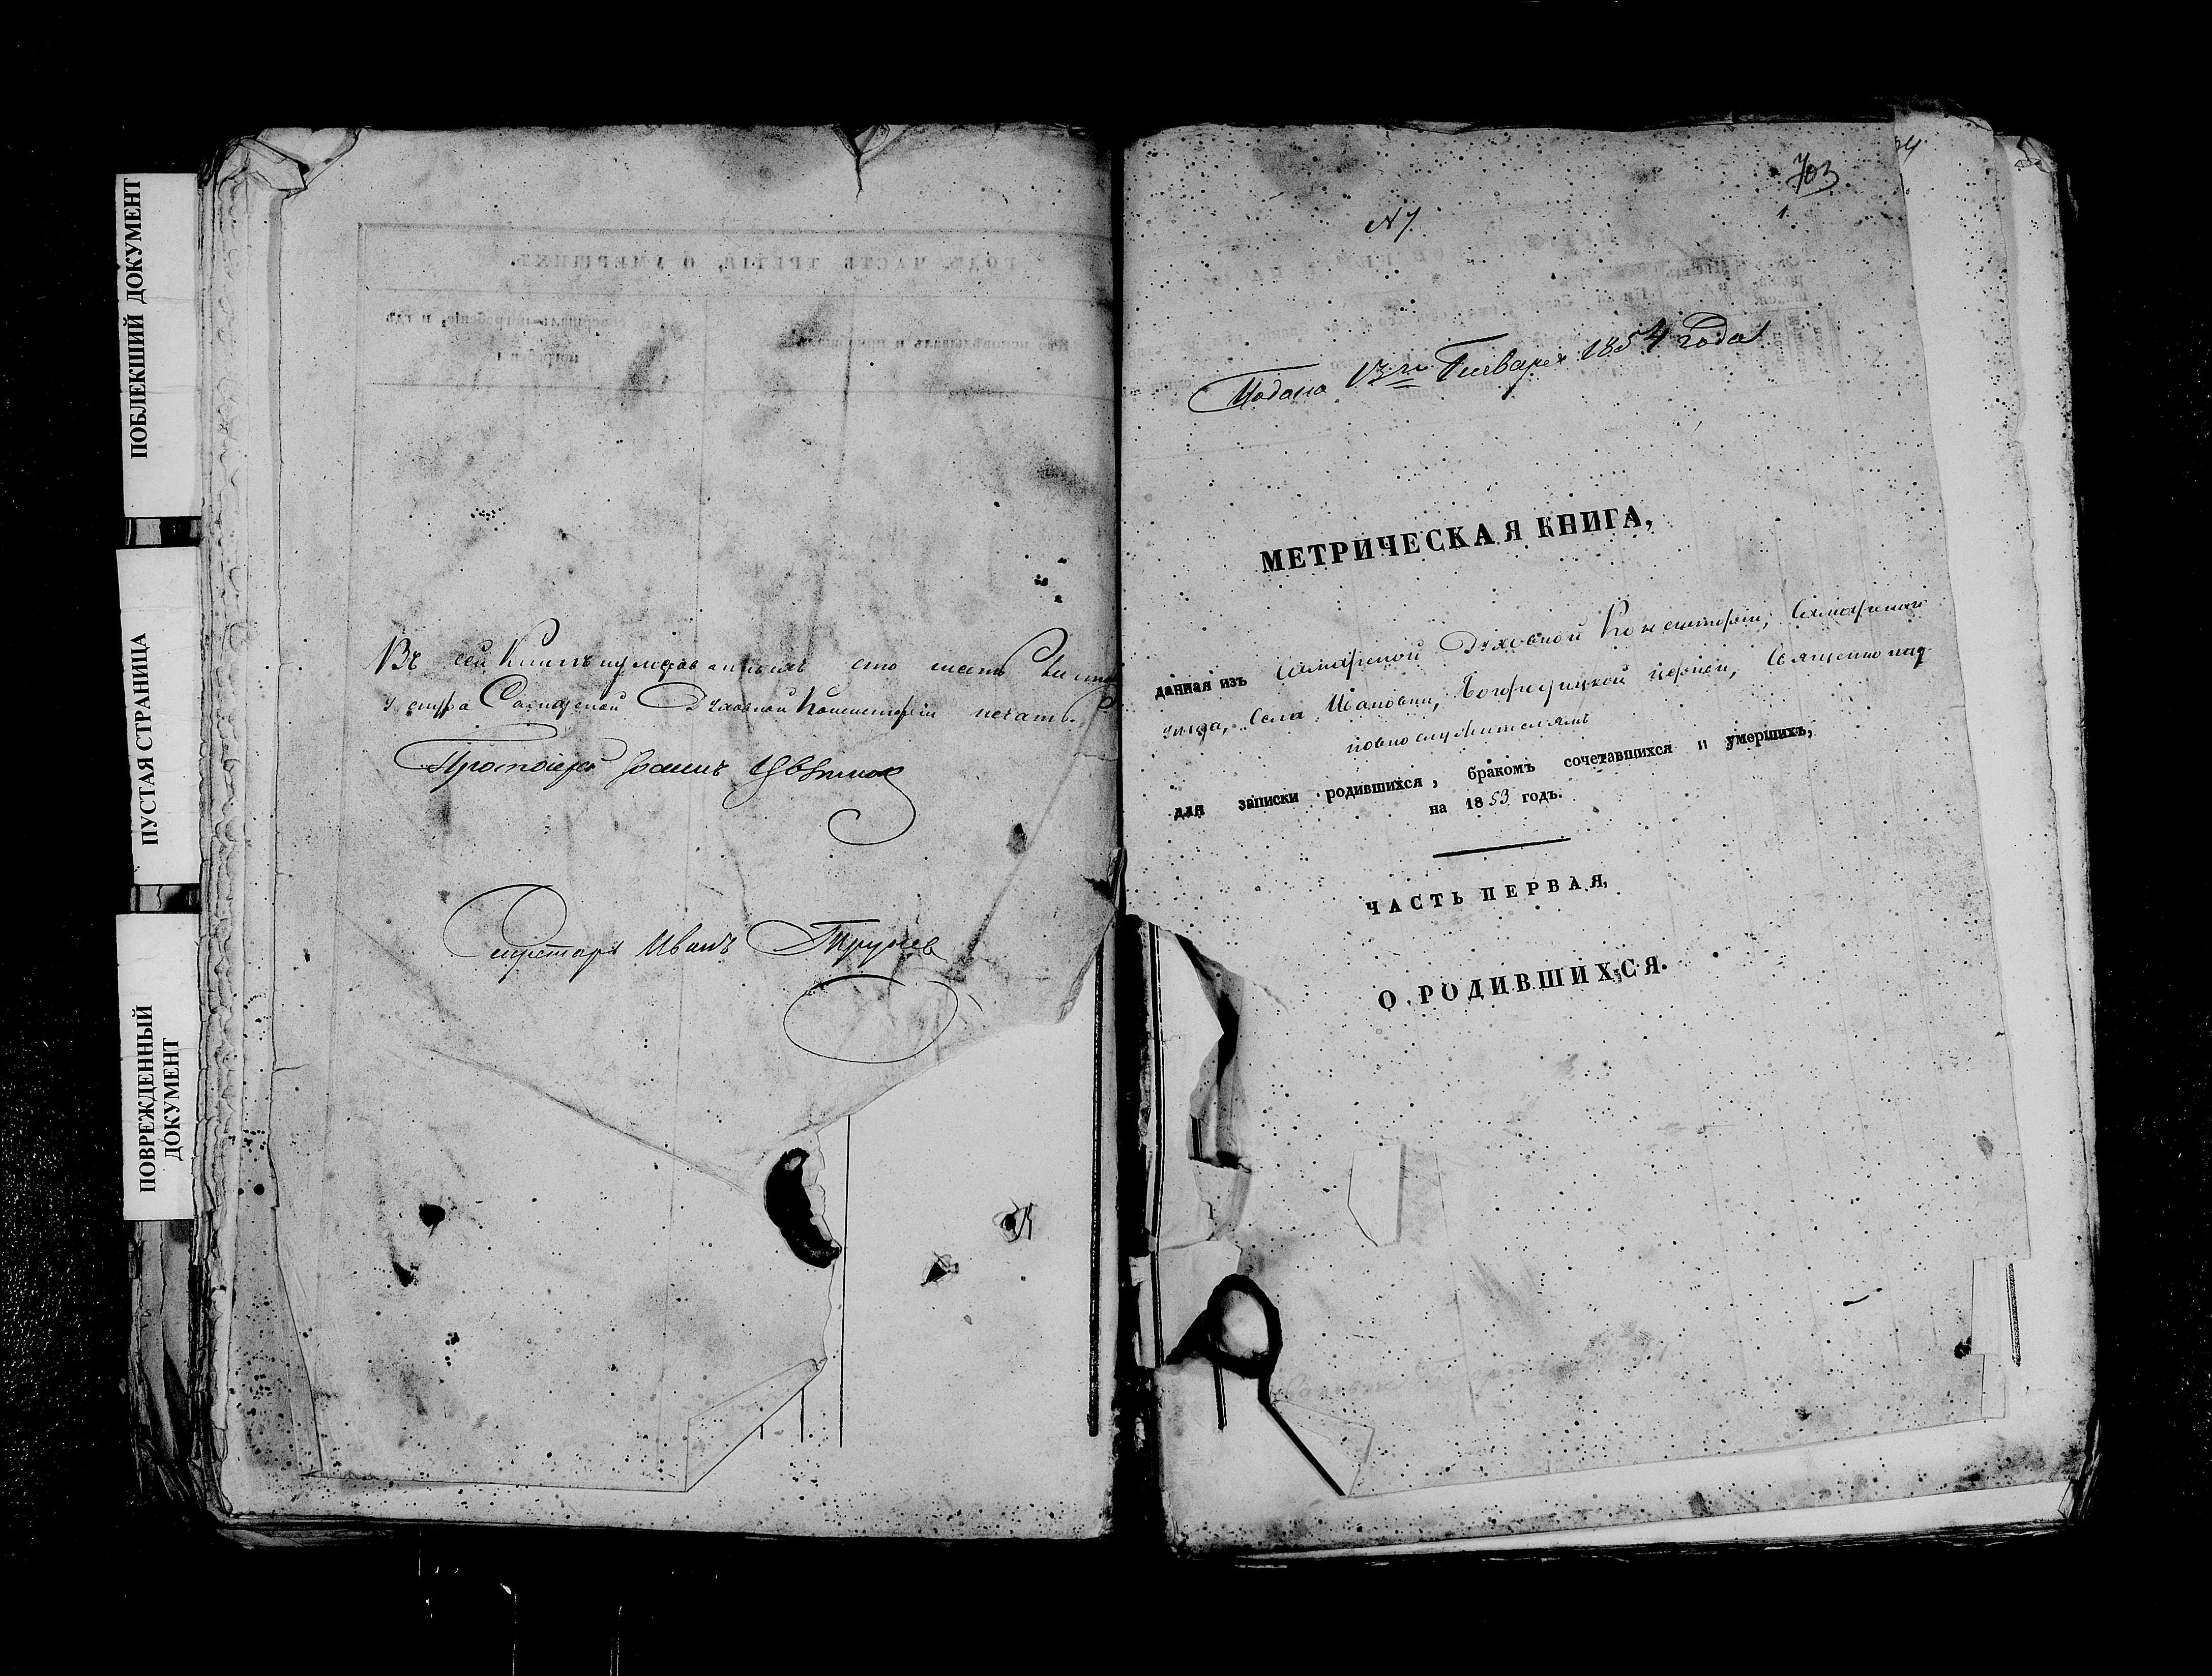 ПОБЛЕКШИЙ ДОКУМЕНТ
ПУСТАЯ СТРАНИЦА
ПОВРЕЖДЕННЫЙ
ДОКУМЕНТ
ГОДЪ, ЧАСТЬ ТРЕТІЯ, О УМЕРШИХЪ.
Въ сей Книгѣ нумерованныхъ сто шесть
Самарской Духовной Консисторіи печать.
Протоіерей Іоаннъ Цвѣтков
Секретарь Иванъ
703
1.
N 7
Подана 13го Генваря 1854 года
МЕТРИЧЕСКАЯ КНИГА,
данная изъ Самарской Духовной Консисторіи, Самарскаго
уѣзда, Села Ивановки, Богородицкой церкви, Священно цер-
ковнослужителямъ
для записки родившихся, бракомъ сочетавшихся и умершихъ,
на 1853 годъ.
ЧАСТЬ ПЕРВАЯ,
О РОДИВШИХСЯ.